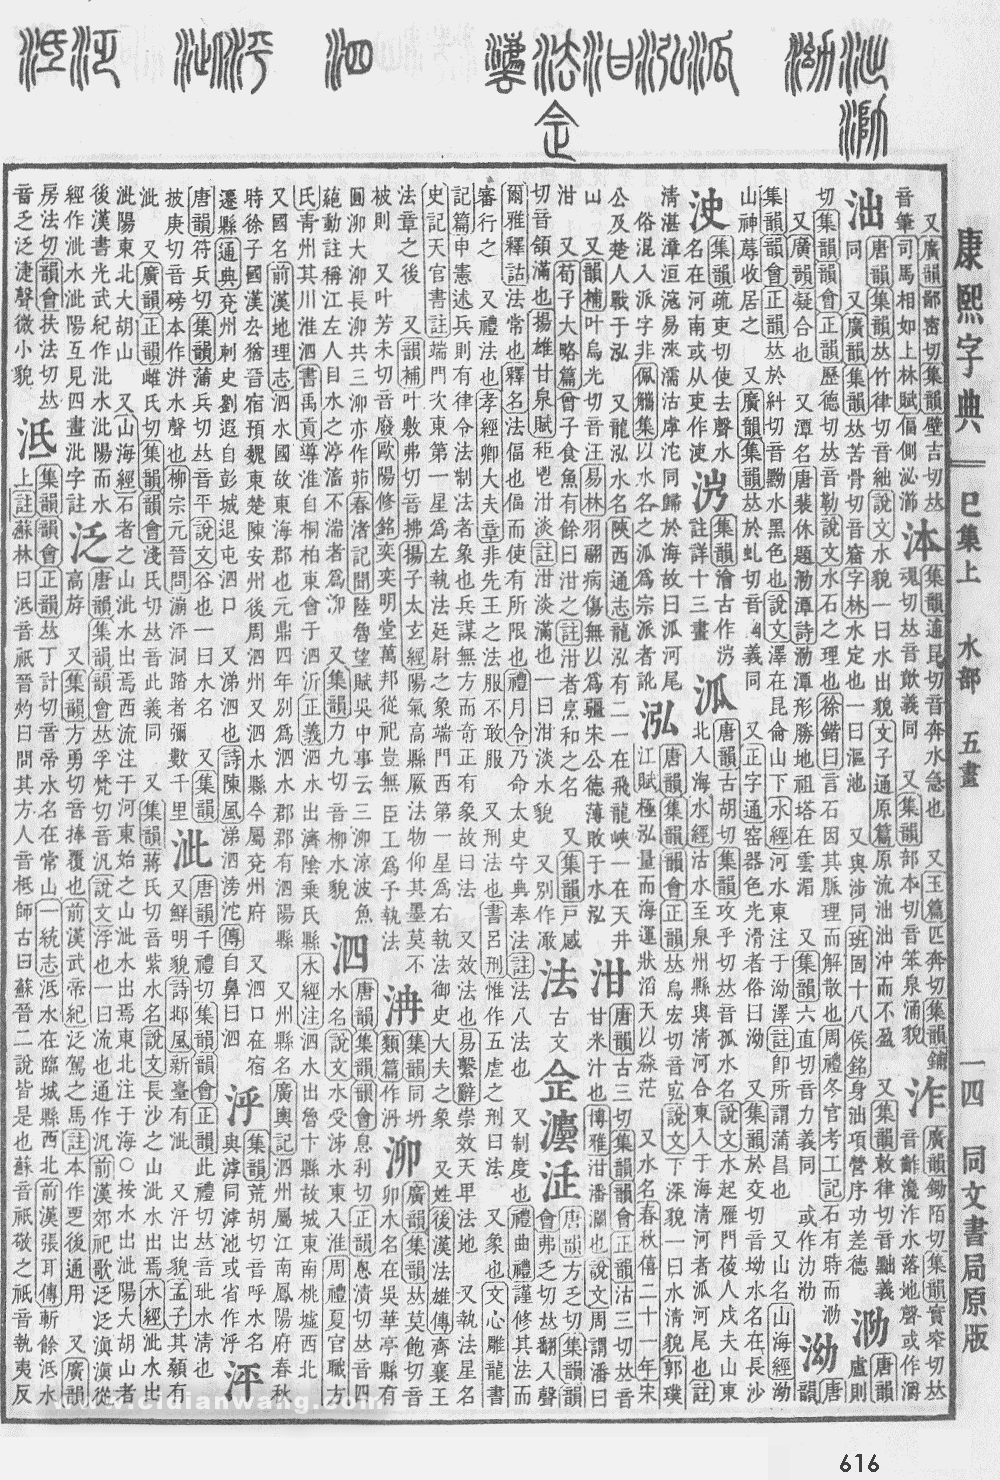 康熙字典 巳集上 水部 五畫 一四 同文書局原版
又廣韻鄙密切集韻壁吉切𠀤
音筆司馬相如上林賦偪側泌㴉
泍
集韻通昆切音奔水急也 又玉篇匹奔切集韻鋪
魂切𠀤音歕義同 又集韻部本切音笨泉涌貌
泎
廣韻鋤陌切集韻實窄切𠀤
音齰瀺泎水落地聲或作
泏
唐韻集韻𠀤竹律切音絀說文水貌一曰水出貌文子通原篇原流泏泏沖而不盈 又集韻敕律切音黜義
同 又廣韻集韻𠀤苦骨切音窟字林水定也一曰漚池 又與涉同班固十八侯銘身泏項營序功差德
泐
唐韻
盧則
切集韻韻會正韻歷德切𠀤音勒說文水石之理也徐鍇曰言石因其脈理而解散也周禮冬官考工記石有時而泐
又廣韻凝合也 又潭名唐裴休題泐潭詩泐潭形勝地祖塔在雲湄 又集韻六直切音力義同 或作氻泐
泑
唐韻
集韻韻會正韻𠀤於糾切音黝水黑色也說文澤在昆侖山下水經河水東注于泑澤註卽所謂蒲昌也 又山名山海經泑
山神蓐收居之 又廣韻集韻𠀤於虬切音𢆶義同 又正字通窑器色光滑者俗曰泑 又集韻於交切音坳水名在長沙
泱
集韻疏吏切使去聲水
名在河南或从吏作浨
汸
集韻澮古作汸
註詳十三畫
泒
唐韻古胡切集韻攻乎切𠀤音孤水名說文水起雁門葰人戍夫山東
北入海水經沽水至泉州縣與清河合東入于海清河者泒河尾也註
清湛漳洹滱易淶濡沽虖沱同歸於海故曰泒河尾
俗混入派字非佩觿集以水名之泒爲宗派者訛
泓
唐韻集韻韻會正韻𠀤烏宏切音宖說文下深貌一曰水清貌郭璞
江賦極泓量而海運狀滔天以淼茫 又水名春秋僖二十一年宋
公及楚人戰于泓 又龍泓水名陝西通志龍泓有二一在飛龍峽一在天井
山 又韻補叶烏光切音汪易林羽翮病傷無以爲疆宋公德薄敗于水泓
泔
唐韻古三切集韻韻會正韻沽三切𠀤音
甘米汁也博雅泔潘瀾也說文周謂潘曰
泔 又荀子大略篇曾子食魚有餘曰泔之註泔者烹和之名 又集韻戸感
切音頷滿也揚雄甘泉賦秬鬯泔淡註泔淡滿也一曰泔淡水貌 又別作澉
法
古文
佱灋㳒
唐韻方乏切集韻韻
會弗乏切𠀤翻入聲
爾雅釋詁法常也釋名法偪也偪而使有所限也禮月令乃命太史守典奉法註法八法也 又制度也禮曲禮謹修其法而
審行之 又禮法也孝經卿大夫章非先王之法服不敢服 又刑法也書呂刑惟作五虐之刑曰法 又象也文心雕龍書
記篇申憲述兵則有律令法制法者象也兵謀無方而奇正有象故曰法 又效法也易繫辭崇效天卑法地 又執法星名
史記天官書註端門次東第一星爲左執法廷尉之象端門西第一星爲右執法御史大夫之象 又姓後漢法雄傳齊襄王
法章之後 又韻補叶敷弗切音拂揚子太玄經陽氣高縣厥法物仰其墨莫不
被則 又叶芳未切音廢歐陽修銘奕奕明堂萬邦從祀豈無臣工爲予執法
泋
集韻同坍
類篇作泋
泖
廣韻集韻𠀤莫飽切音
卯水名在吳華亭縣有
圓泖大泖長泖共三泖亦作茆春渚記聞陸魯望賦吳中事云三泖涼波魚
蕝動註稱江左人目水之渟滀不湍者爲泖 又集韻力九切音柳水貌
泗
唐韻集韻韻會息利切正韻息漬切𠀤音四
水名說文水受泲水東入淮周禮夏官職方
氏靑州其川淮泗書禹貢導淮自桐柏東會于泗沂正義泗水出濟陰乗氏縣水經注泗水出魯十縣故城東南桃墟西北
又國名前漢地理志泗水國故東海郡也元鼎四年別爲泗水郡郡有泗陽縣 又州縣名廣輿記泗州屬江南鳳陽府春秋
時徐子國漢厹猶晉宿預魏東楚陳安州後周泗州又泗水縣今屬兗州府 又泗口在宿
遷縣通典兗州刺史劉遐自彭城退屯泗口 又涕泗也詩陳風涕泗滂沱傳自鼻曰泗
泘
集韻荒胡切音呼水名
與滹同滹池或省作泘
泙
唐韻符兵切集韻蒲兵切𠀤音平說文谷也一曰水名 又集韻
披庚切音磅本作泙水聲也柳宗元晉問漰泙洞踏者彌數千里
泚
唐韻千禮切集韻韻會正韻此禮切𠀤音玼水清也
又鮮明貌詩邶風新臺有泚 又汗出貌孟子其顙有
泚 又廣韻正韻雌氏切集韻韻會淺氏切𠀤音此義同 又集韻蔣氏切音紫水名說文長沙之山泚水出焉水經泚水出
泚陽東北大胡山 又山海經石者之山泚水出焉西流注于河東始之山泚水出焉東北注于海○按水出泚陽大胡山者
後漢書光武紀作沘水沘陽而水
經作泚水泚陽互見四畫沘字註
泛
唐韻集韻韻會𠀤孚梵切音汎說文浮也一曰流也通作汎前漢郊祀歌泛泛滇滇從
高斿 又集韻方勇切音捧覆也前漢武帝紀泛駕之馬註本作覂後通用 又廣韻
房法切韻會扶法切𠀤
音乏泛淕聲微小貌
泜
集韻韻會正韻𠀤丁計切音帝水名在常山一統志泜水在臨城縣西北前漢張耳傳斬餘泜水
上註蘇林曰泜音祇晉灼曰問其方人音柢師古曰蘇晉二說皆是也蘇音祇敬之祇音執夷反
www.cidianwang.com
616